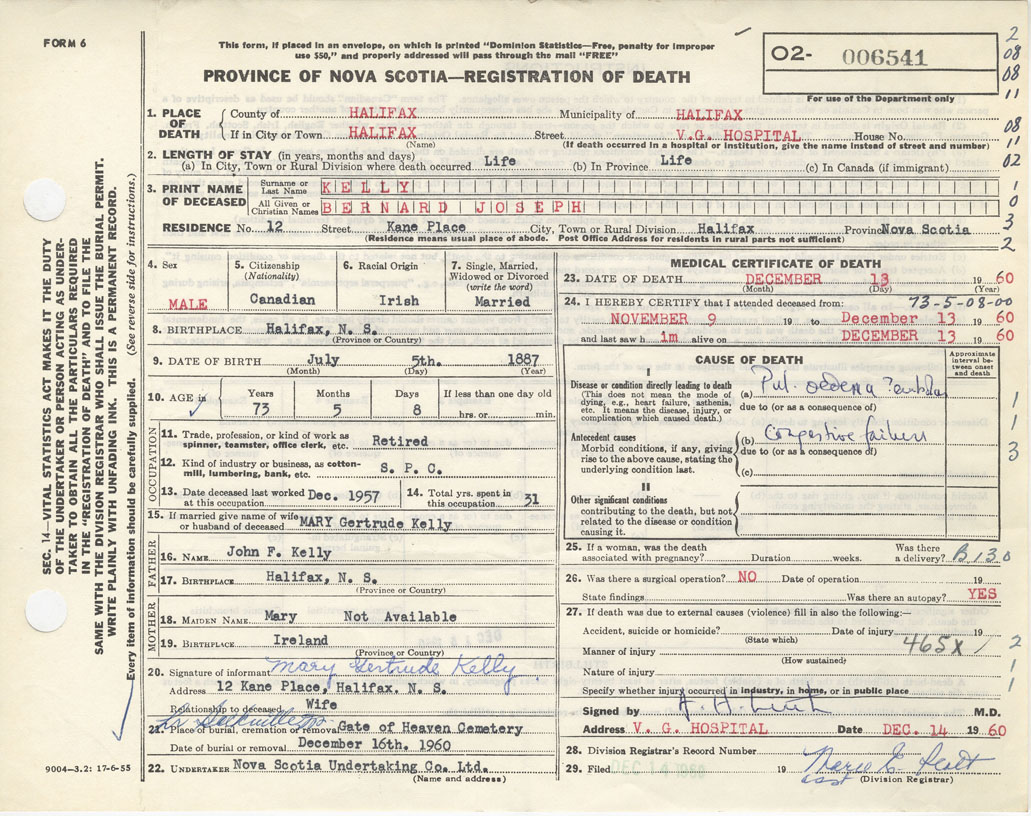 FORM 6
This form, if placed in an envelope, on which is printed "Dominion Statistics—Free, penalty for improper
use $50," and properly addressed will pass through the mail "FREE"
PROVINCE OF NOVA SCOTIA—REGISTRATION OF DEATH
O2- 006541
For use of the Department only
2
08
08
11
08
11
02
1
0
3
2
1. PLACE OF DEATH County of HALIFAX Municipality of HALIFAX
If in City or Town HALIFAX Street V.G. HOSPITAL House No.
(Name) (If death occurred in a hospital or institution, give the name instead of street and number)
2. LENGTH OF STAY (in years, months and days)
(a) In City, Town or Rural Division where death occurred Life (b) In Province Life (c) In Canada (if immigrant)
3. PRINT NAME OF DECEASED Surname or Last Name KELLY
All Given or Christian Names BERNARD JOSEPH
RESIDENCE No. 12 Street Kane Place City, Town or Rural Division Halifax Province Nova Scotia
(Residence means usual place of abode. Post Office Address for residents in rural parts not sufficient)
4. Sex MALE
5. Citizenship (Nationality) Canadian
6. Racial Origin Irish
7. Single, Married, Widowed or Divorced (write the word) Married
8. BIRTHPLACE Halifax, N. S.
(Province or Country)
9. DATE OF BIRTH July 5th. 1887
(Month) (Day) (Year)
10. AGE in Years Months Days If less than one day old
73 5 8 hrs. or min.
OCCUPATION
11. Trade, profession, or kind of work as spinner, teamster, office clerk, etc. Retired
12. Kind of industry or business, as cotton-mill, lumbering, bank, etc. S. P. C.
13. Date deceased last worked at this occupation Dec. 1957 14. Total yrs. spent in this occupation 31
15. If married give name of wife or husband of deceased MARY Gertrude Kelly
FATHER
16. NAME John F. Kelly
17. BIRTHPLACE Halifax, N. S.
(Province or Country)
MOTHER
18. MAIDEN NAME Mary Not Available
19. BIRTHPLACE Ireland
(Province or Country)
20. Signature of informant Mary Gertrude Kelly
Address 12 Kane Place, Halifax. N. S.
Relationship to deceased Wife
21. Place of burial, cremation or removal Gate of Heaven Cemetery
Date of burial or removal December 16th. 1960
22. UNDERTAKER Nova Scotia Undertaking Co. Ltd.
(Name and address)
MEDICAL CERTIFICATE OF DEATH
23. DATE OF DEATH DECEMBER 13 1960
(Month) (Day) (Year)
24. I HEREBY CERTIFY that I attended deceased from: 73-5-08-00
NOVEMBER 9 19 to December 13 1960
and last saw h im alive on DECEMBER 13 1960
CAUSE OF DEATH
Approximate interval between onset and death
I
Disease or condition directly leading to death
(This does not mean the mode of dying, e.g., heart failure, asthenia, etc. It means the disease, injury, or complication which caused death.)
(a) Pul. oedema
due to (or as a consequence of)
Antecedent causes
Morbid conditions, if any, giving rise to the above cause, stating the underlying condition last.
(b) Congestive failure
due to (or as a consequence of)
(c)
1
1
3
II
Other significant conditions
contributing to the death, but not related to the disease or condition causing it.
25. If a woman, was the death associated with pregnancy? Duration weeks. Was there a delivery? B.130
26. Was there a surgical operation? NO Date of operation 19
State findings Was there an autopsy? YES
27. If death was due to external causes (violence) fill in also the following:—
Accident, suicide or homicide? Date of injury 19
(State which)
Manner of injury 465X 1 2
(How sustained)
Nature of injury 1
Specify whether injury occurred in industry, in home, or in public place 1
Signed by M.D.
Address V. G. HOSPITAL Date DEC. 14 1960
28. Division Registrar's Record Number
29. Filed DEC 14 1960 19
(Division Registrar)
SEC. 14—VITAL STATISTICS ACT MAKES IT THE DUTY
OF THE UNDERTAKER OR PERSON ACTING AS UNDER-
TAKER TO OBTAIN ALL THE PARTICULARS REQUIRED
IN THE "REGISTRATION OF DEATH" AND TO FILE THE
SAME WITH THE DIVISION REGISTRAR WHO SHALL ISSUE THE BURIAL PERMIT.
WRITE PLAINLY WITH UNFADING INK. THIS IS A PERMANENT RECORD.
Every item of information should be carefully supplied. (See reverse side for instructions.)
9004—3.2: 17-6-55